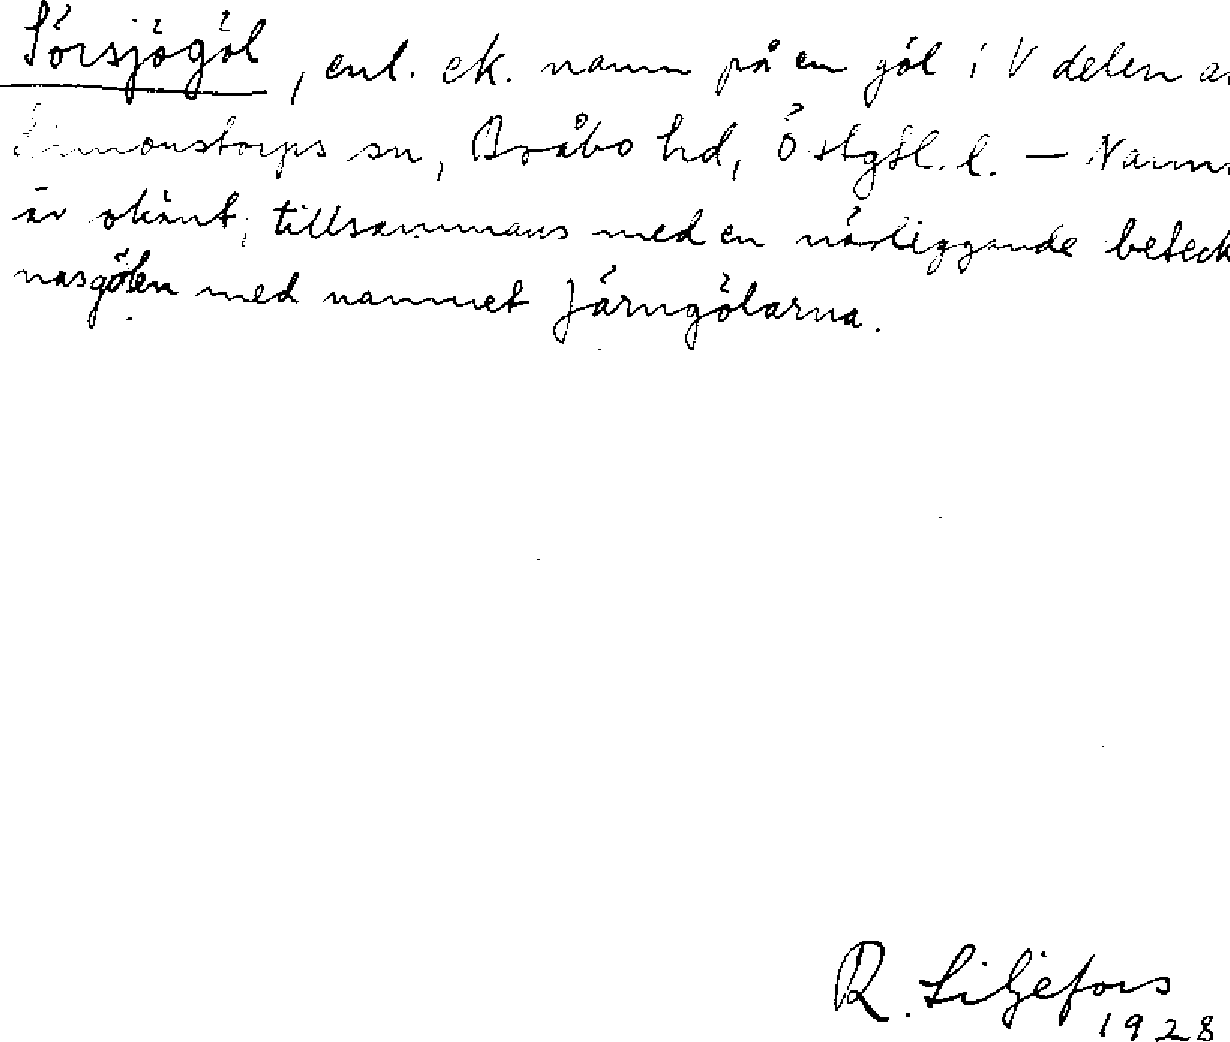 Sörsjögöl, enl. ek. namn på en göl i V delen av
Simonstorps sn, Bråbo hd, Östgtl. l. — Namn
är okänt; tillsammans med en närliggande beteck
nas gölen med namnet Järngölarna.
R. Liljefors
1928